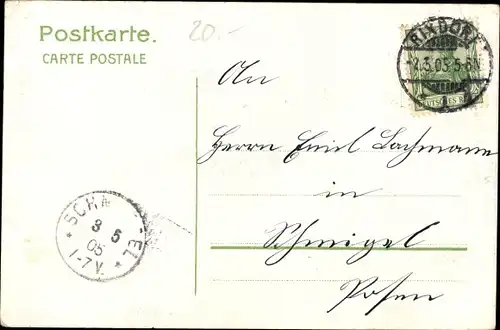 Postkarte.
CARTE POSTALE
20.-
RIXDORF
2.3.05.5-6N
An
Herrn Emil Lachmann
in
Schmigel
Posen
SCHM EL
3 5
05
1-7V.